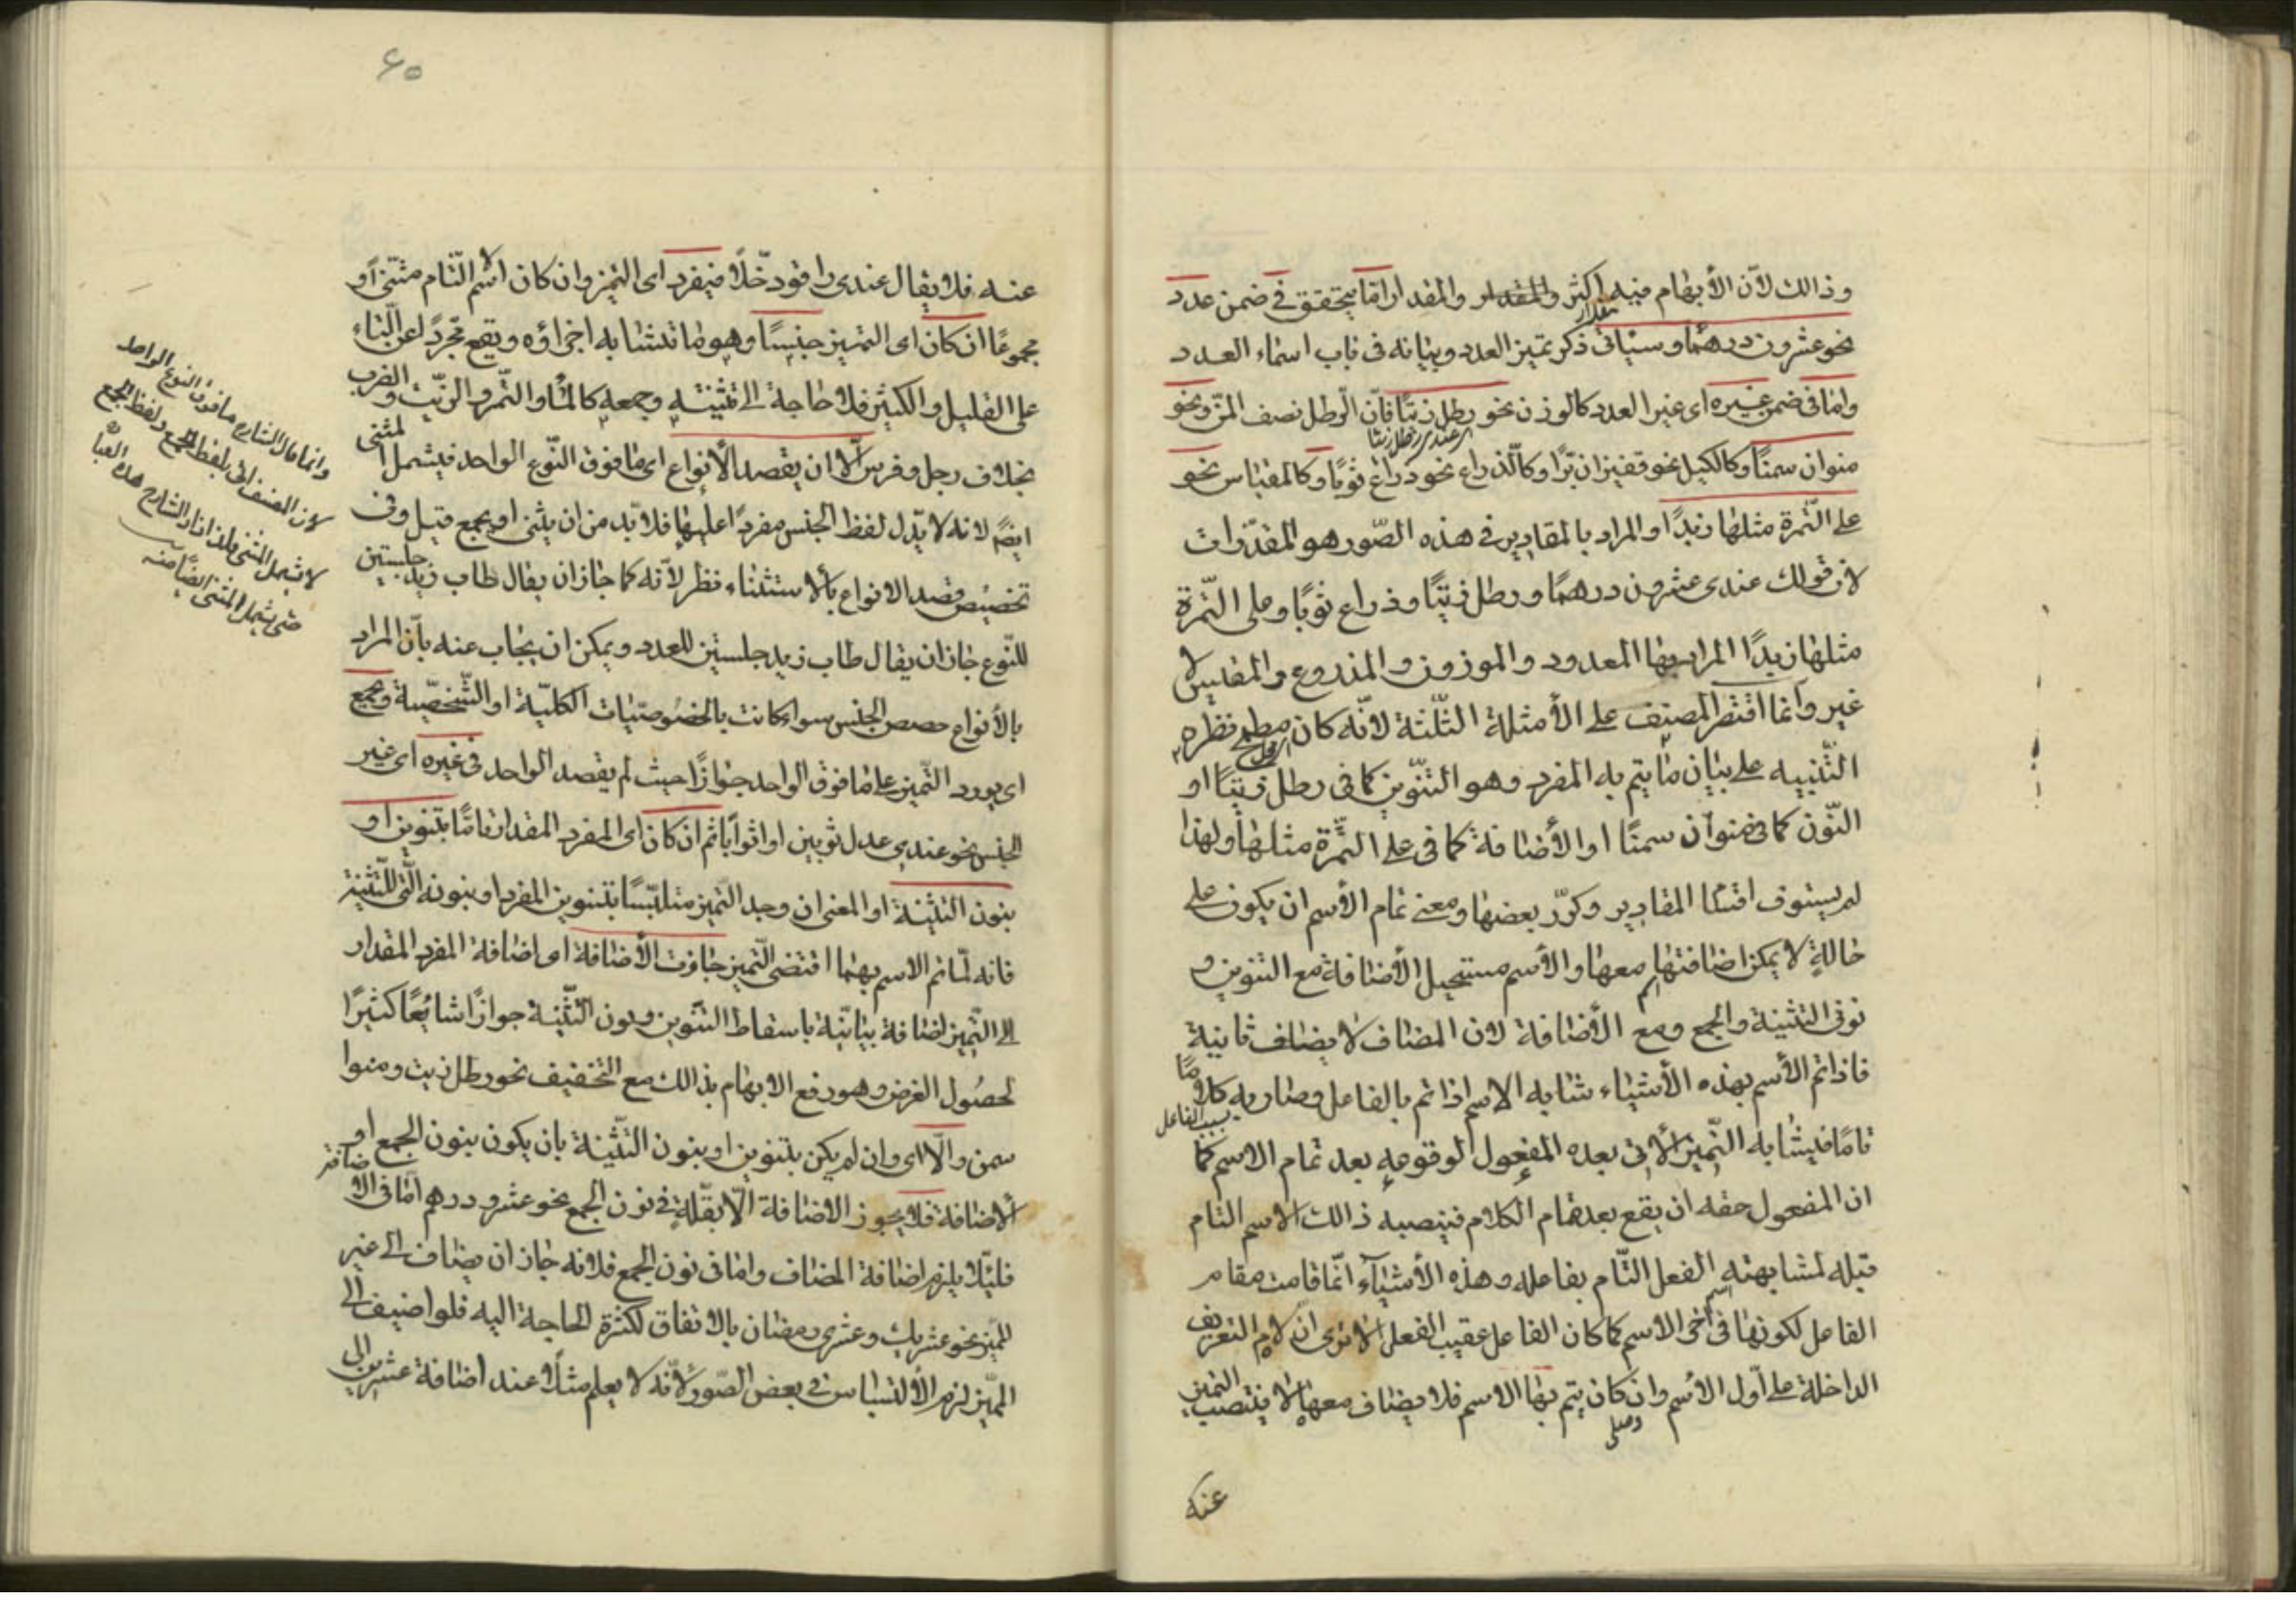 وذالك لأن الأبهام فيه اكثر والمقدار والمقدار امّا يتحقق فى ضمن عدد
مقدار
نحو عشرون درهمًا وسيأتى ذكر تميز العدد وبيانه فى باب اسماء العدد
وامّا فى ضمن غيره اى غير العدد كالوزن نحو رطل زيتًا فانّ الرطل نصف المنّ ونحو
اى عندى رطل زيتا
منوان سمنًا وكالكيل نحو قفيزان برًّا وكالذراع نحو ذراع ثوبًا وكالمقياس نحو
على التّمرة مثلها زبدًا والمراد بالمقادير فى هذه الصّور هو المقدّرات
لان قولك عندى عشرون درهمًا ورطل زيتًا وذراع ثوبًا وعلى التمرة
مثلها زبدًا المراد بها المعدود والموزون والمذروع والمقيس لا
غير وانّما اقتصر المصنف على الأمثلة الثلثة لانّه كان مطمح نظره
التّنبيه على بيان ما يتم به المفرد وهو التنّوين كما فى رطل زيتًا او
النّون كما فى منوان سمنًا او الأضافة كما فى على التّمرة مثلها ولهذا
لم يستوف اقسام المقادير وكرّر بعضها ومعنى تمام الأسم ان يكون على
حالةٍ لا يمكن اضافتها معها والأسم مستحيل الأضافة مع التنوين و
نونى التثنية والجمع ومع الأضافة لان المضاف لا يضاف ثانية
فاذا تم الأسم بهذه الأشياء شابه الاسم اذا تم بالفاعل وصار به كلامًا
بسبب الفاعل
تامًا فيشابه التّميز الأتى بعده المفعول لوقوعه بعد تمام الاسم كما
ان المفعول حقه ان يقع بعد تمام الكلام فينصبه ذالك الاسم التام
قبله لمشابهته الفعل التّام بفاعله وهذه الأشياء انّما قامت مقام
الفاعل لكونها فى أخر الاسم كما كان الفاعل عقيب الفعل الا ترى انّ لام التعريف
الداخلة على اوّل الاسم وان كان يتم بها الاسم فلا يضاف معها لا ينتصب التميز
وصلى
عنه
٦٥
عنه فلا يقال عندى راقود خّلًا فيفرد اى التميز وان كان الاسم التّام مثنّى او
مجموعًا ان كان اى التميز جنسًا وهو ما تتشابه اجزاؤه ويقع مجرّدًا عن التّاء
على القليل والكثير فلا حاجة الى تثنيته وجمعه كالماء والتّمر والزيت والضرب
بخلاف رجل وفرس الّا ان يقصد الأنواع اى ما فوق النّوع الواحد فيشمل المثنى
ايضًا لانه لا يدّل لفظ الجنس مفردًا عليها فلا بّد من ان يثنى او يجمع قيل وفى
تخصيص قصد الانواع بالاستثناء نظر لأنه كما جاز ان يقال طاب زيد جلستين
للنّوع جاز ان يقال طاب زيد جلستين للعدد ويمكن ان يجاب عنه بانّ المراد
بالأنواع حصص الجنس سواء كانت بالخصوصيّات الكليّة او الشّخصيّة ويجمع
اى يورد التّميز على ما فوق الواحد جوازًا حيث لم يقصد الواحد فى غيره اى غير
الجنس نحو عندى عدل ثوبين او اثوابًا ثم ان كان اى المفرد المقدار تامًا بتنوين او
بنون التثنية او المعنى ان وجد التّميز متلبّسًا بتنوين المفرد او بنونه الّتى للتّثنية
فانه لّما تم الاسم بهما اقتضى التّميز جازت الأضافة اى اضافة المفرد المقدار
الى التّميز اضافة بيانيّة باسقاط التّنوين ونون التّثنية جوازًا شايعًا كثيرًا
لحصول الغرض وهو رفع الابهام بذالك مع التخفيف نحو رطل زيت ومنوا
سمن والّا اى وان لم يكن بتنوين او بنون التّثنية بان يكون بنون الجمع او
الأضافة فلا يجوز الاضافة الّا بقلّةٍ فى نون الجمع نحو عشرو درهم امّا فى الاضافة
فلئّلا يلزم اضافة المضاف وامّا فى نون الجمع فلانه جاز ان يضاف الى غير
المميّز نحو عشريك وعشرى رمضان بالاتفاق لكثرة الحاجة اليه فلو اضيف الى
المميّز لزم الألتباس فى بعض الصّور لأنّه لا يعلم مثلًا عند اضافة عشرين الى
وانما قال الشارح ما فوق النوع الواحد
لان المصنف اتى بلفظ الجمع ولفظ الجمع
لا يشمل المثنى فلذا زاد الشارح هذه العبا
حتى يشمل المثنى ايضًا منه